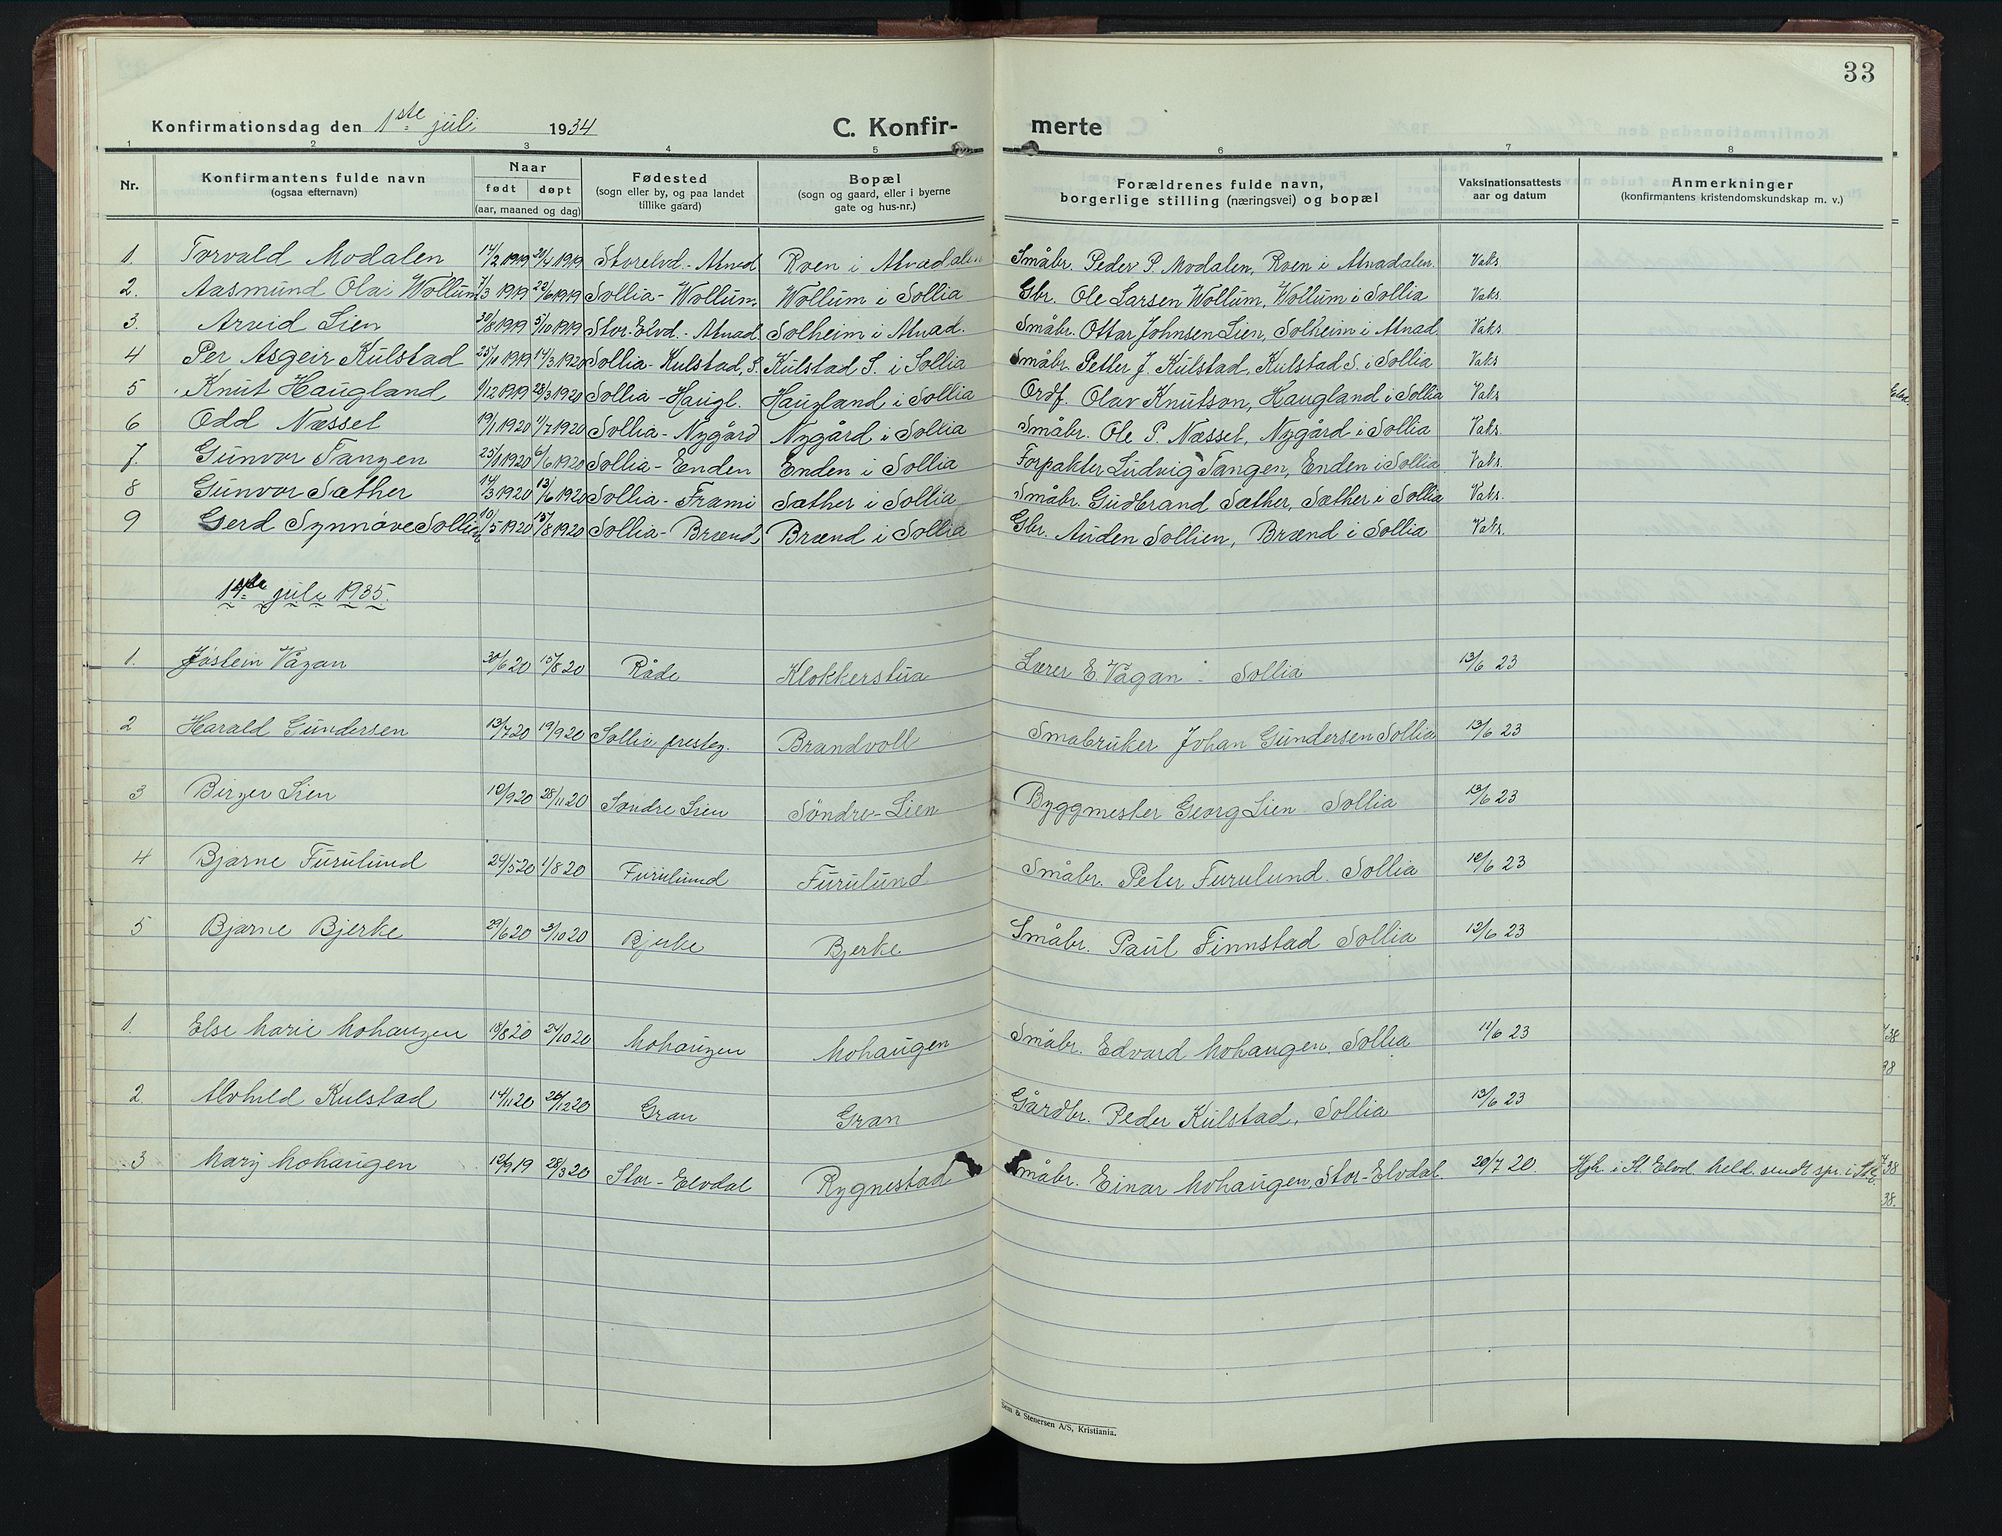 33
Konfirmationsdag den 1ste juli 1934 C. Konfir- merte
1 2 3 4 5 6 7 8
Nr. Konfirmantens fulde navn (ogsaa efternavn) Naar født døpt (aar, maaned og dag) Fødested (sogn eller by, og paa landet tillike gaard) Bopæl (sogn og gaard, eller i byerne gate og hus-nr.) Forældrenes fulde navn, borgerlige stilling (næringsvei) og bopæl Vaksinationsattests aar og datum Anmerkninger (konfirmantens kristendomskundskap m. v.)
1. Torvald Modalen 14/2 1919 20/4 1919 Storelvd.- Atnad Roen i Atnadalen Småbr. Peder P. Modalen, Roen i Atnadalen. Vaks
2. Aasmund Olai Wollum 7/3 1919 22/6 1919 Sollia - Wollum. Wollum i Sollia Gbr. Ole Larsen Wollum, Wollum i Sollia Vaks.
3. Arvid Lien 30/8 1919 5/10 1919 Stor.Elvd.- Atnad. Solheim i Atnad. Småbr. Ottar Johnsen Lien, Solheim i Atnad Vaks
4 Per Asgeir Kulstad 25/11 1919 14/3 1920 Sollia - Kulstad, S. Kulstad S. i Sollia Småbr. Petter J. Kulstad, Kulstad S. i Sollia Vaks
5 Knut Haugland 1/12 1919 28/3 1920 Sollia - Haugl. Haugland i Sollia Ordf. Olav Knutson, Haugland i Sollia Vaks
6 Odd Næsset 19/1 1920 4/7 1920 Sollia - Nygård Nygård i Sollia Småbr. Ole P. Næsset, Nygård i Sollia Vaks.
7. Gunvor Tangen 25/1 1920 6/6 1920 Sollia - Enden Enden i Sollia Forpakter Ludvig Tangen, Enden i Sollia Vaks.
8 Gunvor Sæther 14/3 1920 13/6 1920 Sollia - Frami Sæther i Sollia Småbr. Gudbrand Sæther, Sæther i Sollia Vaks.
9 Gerd Synnøve Sollien 10/5 1920 15/8 1920 Sollia - Brænd, Brænd i Sollia Gbr. Auden Sollien, Brænd i Sollia Vaks.
14de juli 1935.
1. Jostein Vågan 30/6 20 15/8 20 Råde Klokkerstua Lærer E. Vågan Sollia 13/6 23
2 Harald Gundersen 13/7 20 19/9 20 Sollia presteg. Brandvoll Småbruker Johan Gundersen Sollia 13/6 23
3 Birger Lien 10/9 20 28/11 20 Søndre Lien Söndre-Lien Byggmester Georg Lien Sollia 13/6 23
4 Bjarne Furulund 24/5 20 1/8 20 Furulund Furulund Småbr. Peter Furulund. Sollia 12/6 23
5 Bjarne Bjerke 29/6 20 3/10 20 Bjerke Bjerke Småbr. Paul Finnstad Sollia 12/6 23
1. Else Marie Mohaugen 18/8 20 24/10 20 Mohaugen Mohaugen Småbr. Edvard Mohaugen. Sollia 11/6 23
2. Alvhild Kulstad 14/11 20 26/12 20 Gran Gran Gårdbr. Peder Kulstad, Sollia 13/6 23
3 Mary Mohaugen 12/9 19 28/3 20 Stor-Elvdal Rygnestad Småbr. Einar Mohaugen, Stor-Elvdal. 20/7 20. i St. Elvd. sendt spr. i St. E.
Sem & Stenersen A/S, Kristiania.